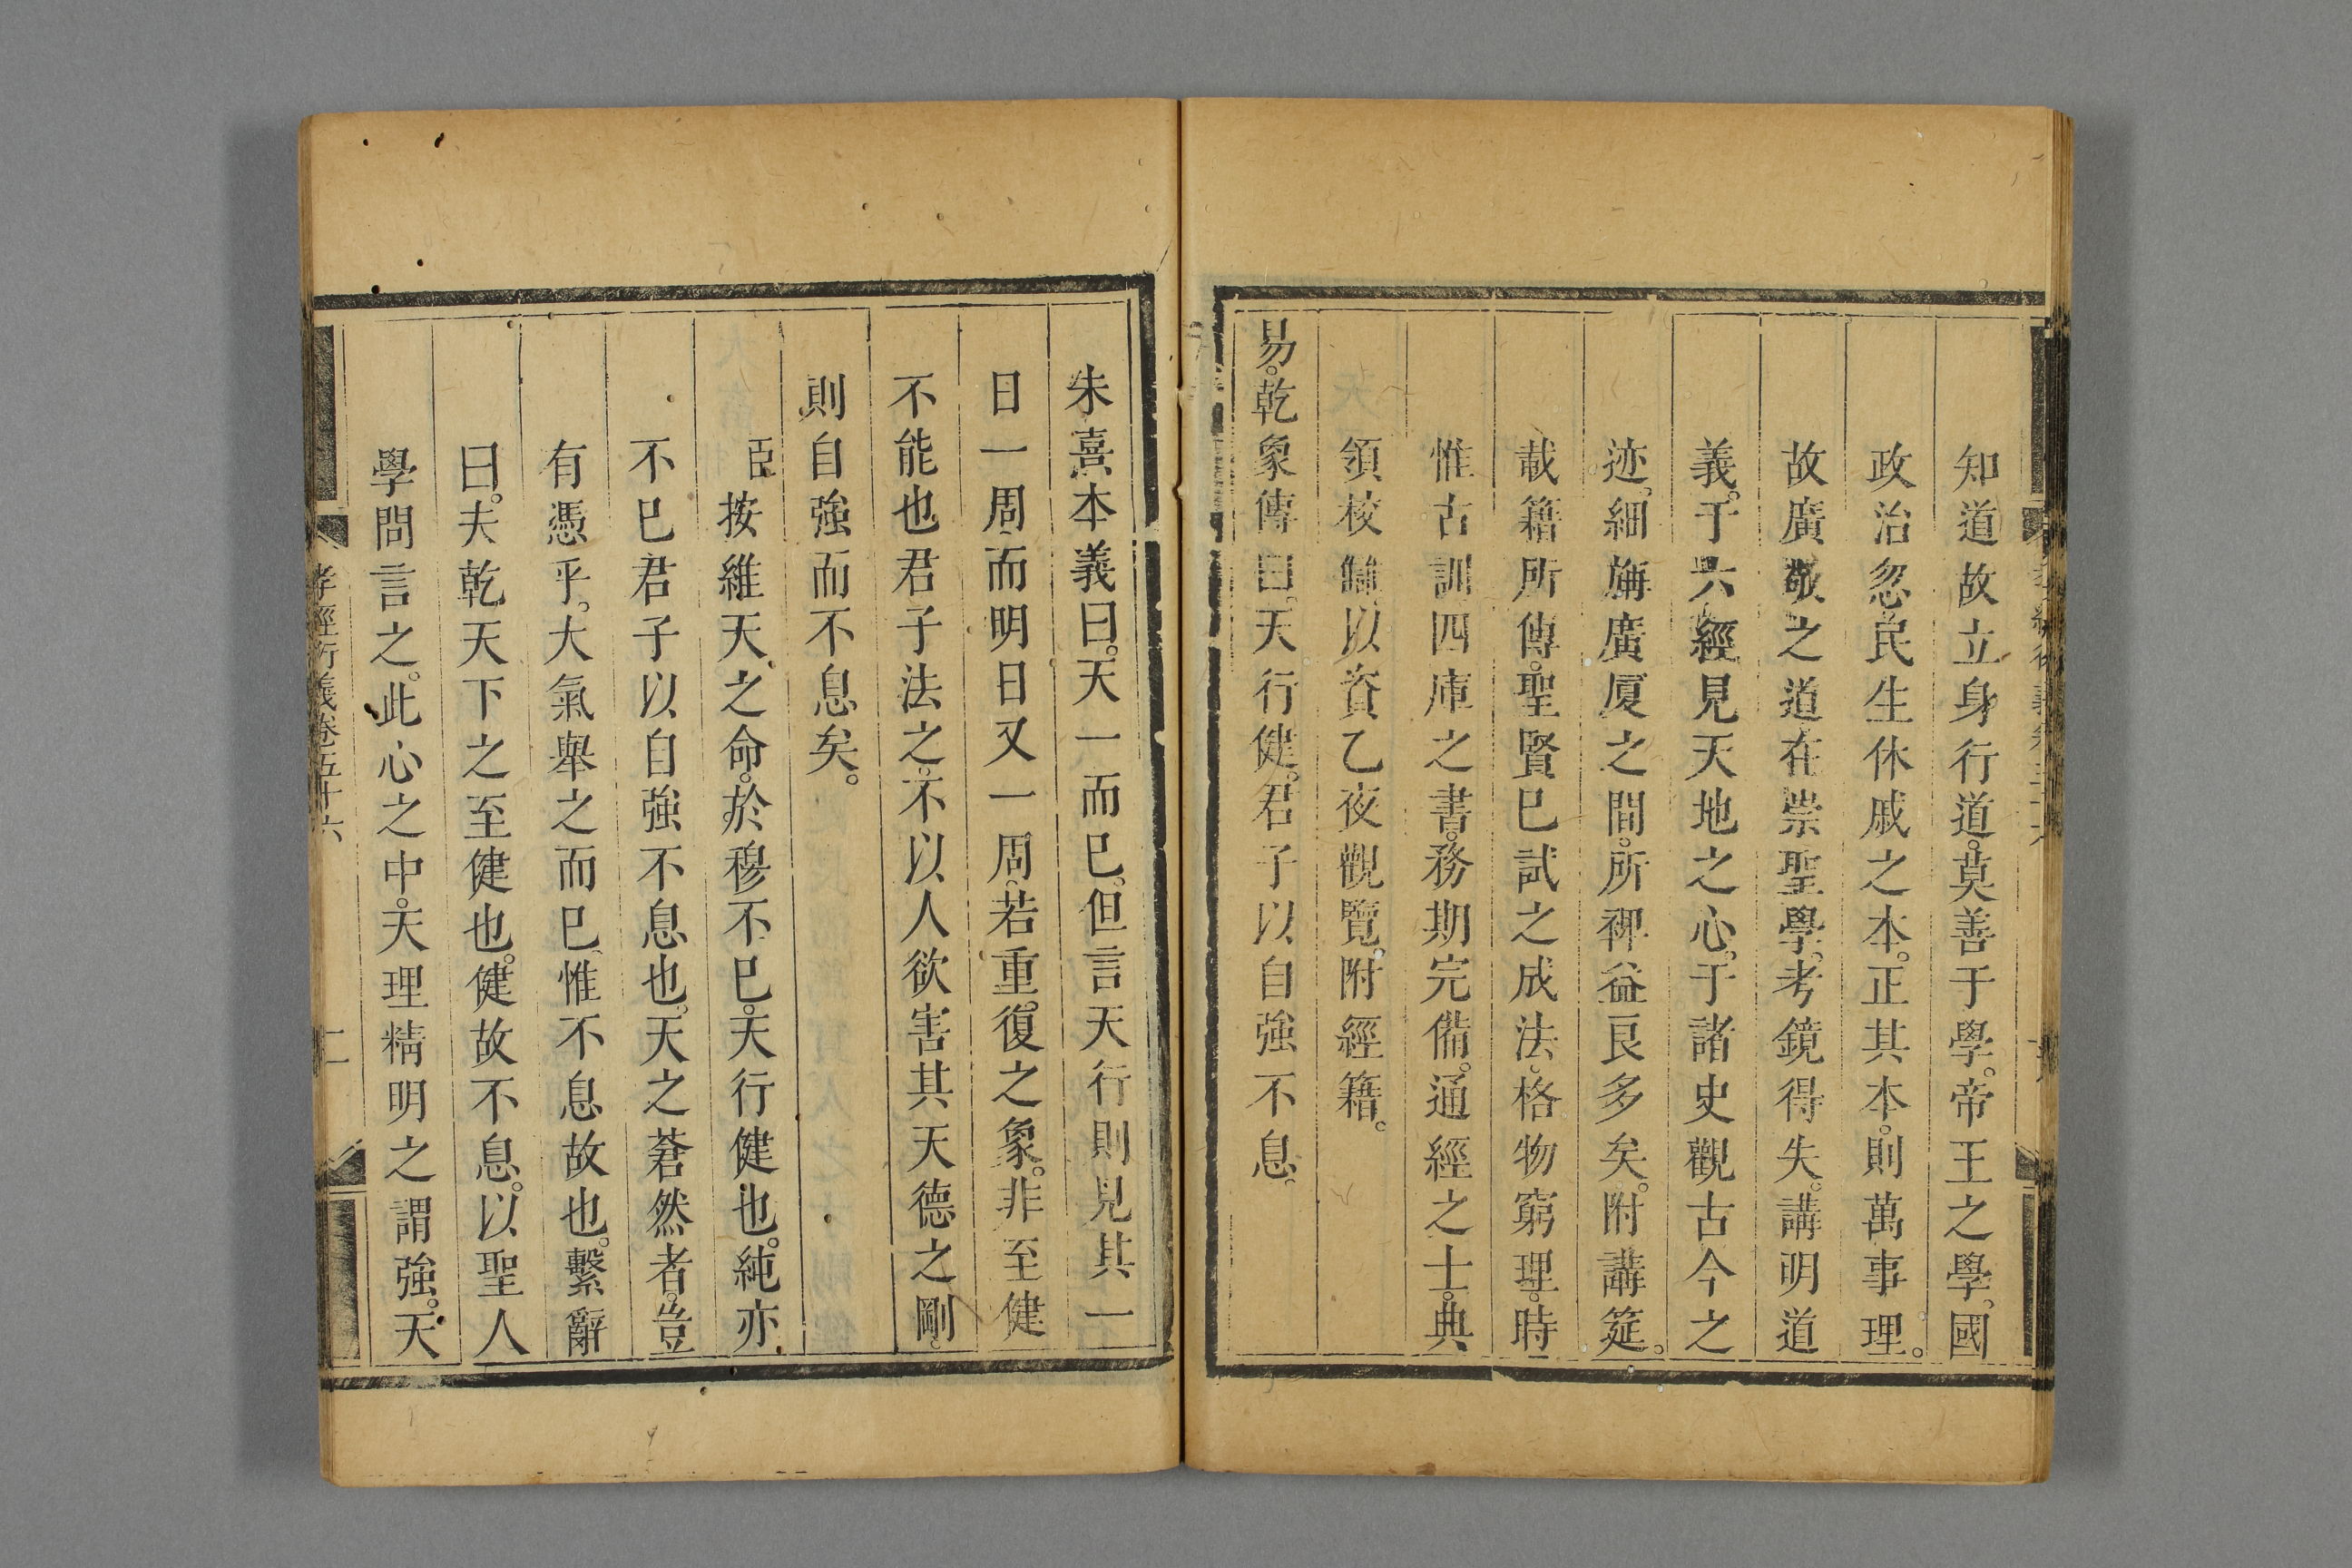 知道故立身行道。莫善于學。帝王之學。國
政治忽民生休戚之本。正其本。則萬事理。
故廣敬之道在崇聖學。考鏡得失。講明道
義。于六經見天地之心。于諸史觀古今之
迹。細旃廣厦之間。所裨益良多矣。附講筵。
載籍所傳。聖賢已試之成法。格物窮理。時
惟古訓四庫之書。務期完備。通經之士。典
領校讎以資乙夜觀覽。附經籍。
易。乾象傳曰。天行健。君子以自強不息。
朱熹本義曰。天一而已。但言天行則見其一
日一周而明日又一周。若重復之象。非至健
不能也君子法之。不以人欲害其天德之剛。
則自強而不息矣。
臣按維天之命。於穆不已。天行健也。純亦
不已君子以自強不息也。天之蒼然者。豈
有憑乎。大氣舉之而已惟不息故也。繫辭
曰。夫乾天下之至健也。健故不息。以聖人
學問言之。此心之中。天理精明之謂強。天
孝經衍義卷五十六 二